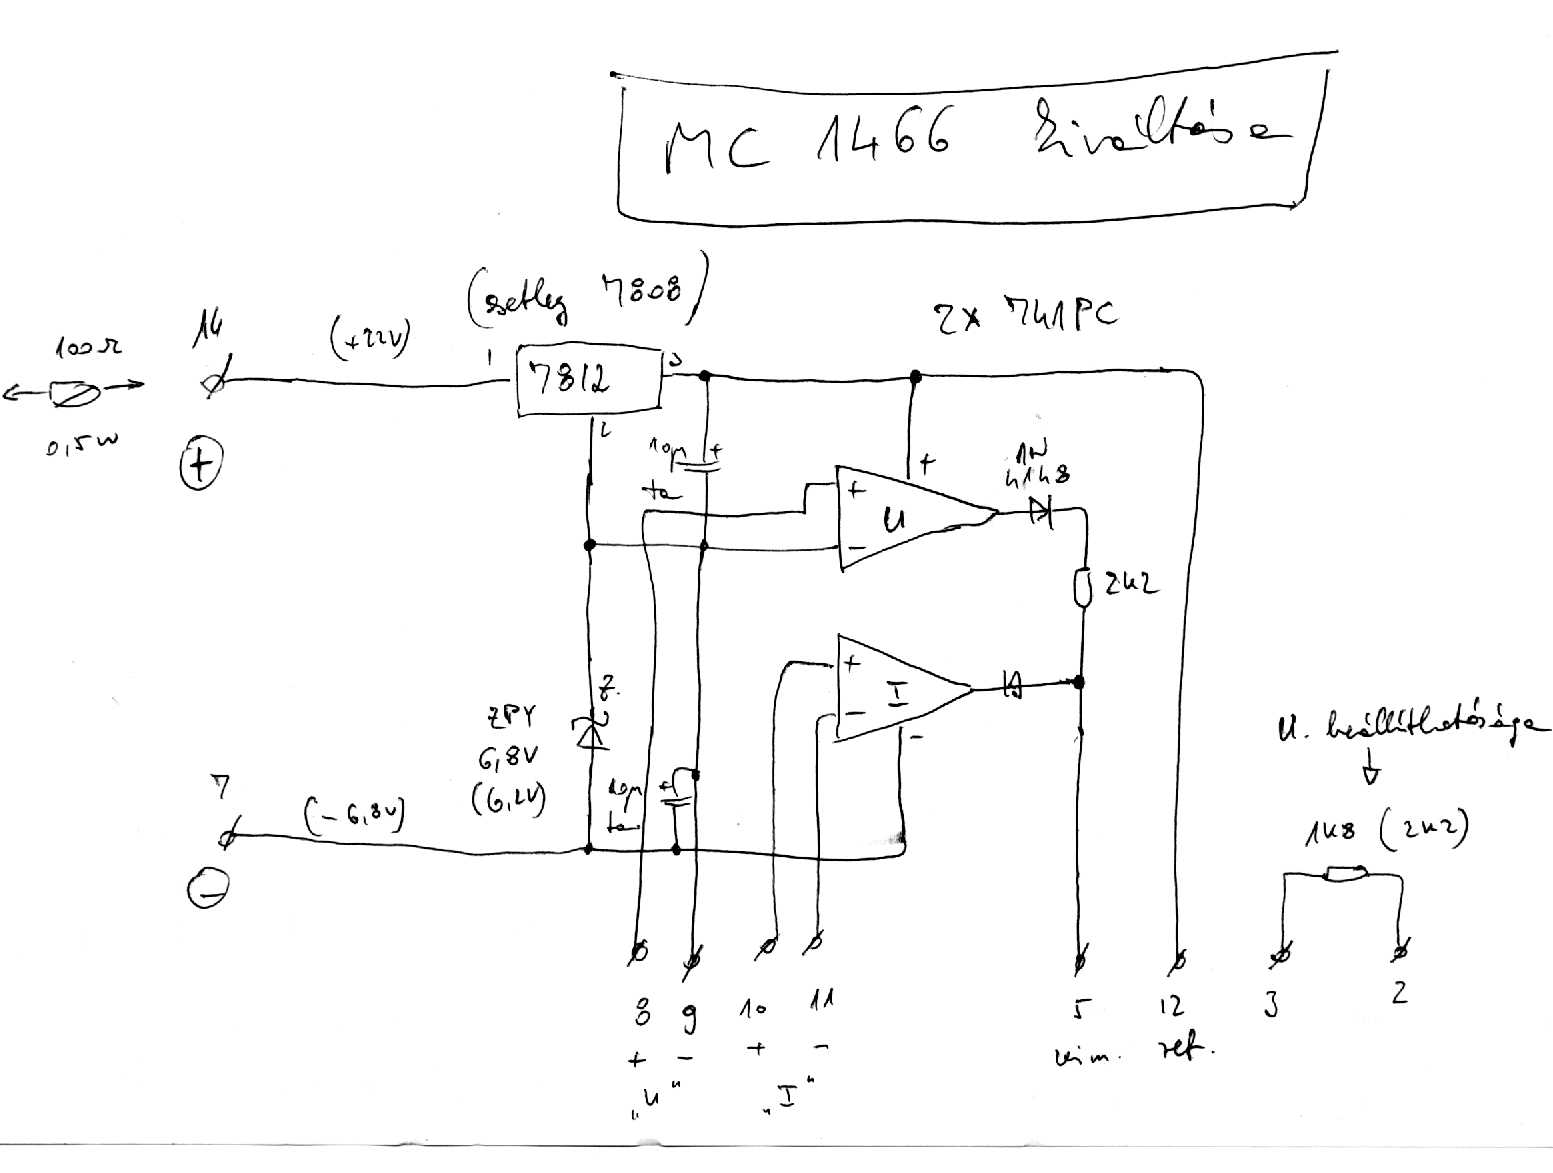 MC 1466 kiváltása
(esetleg 7808)
2x 741PC
14
(+22V)
100Ω
0,5W
+
1
7812
3
2
10μ
+
ta
+
1N
4148
+
U
-
2k2
+
I
-
-
Z.
ZPY
6,8V
(6,2V)
10μ
+
ta
7
(-6,8V)
-
U. beállíthatósága
1k8 (2k2)
8 9 10 11 5 12 3 2
+ - + - kim. ref.
„U" „I"